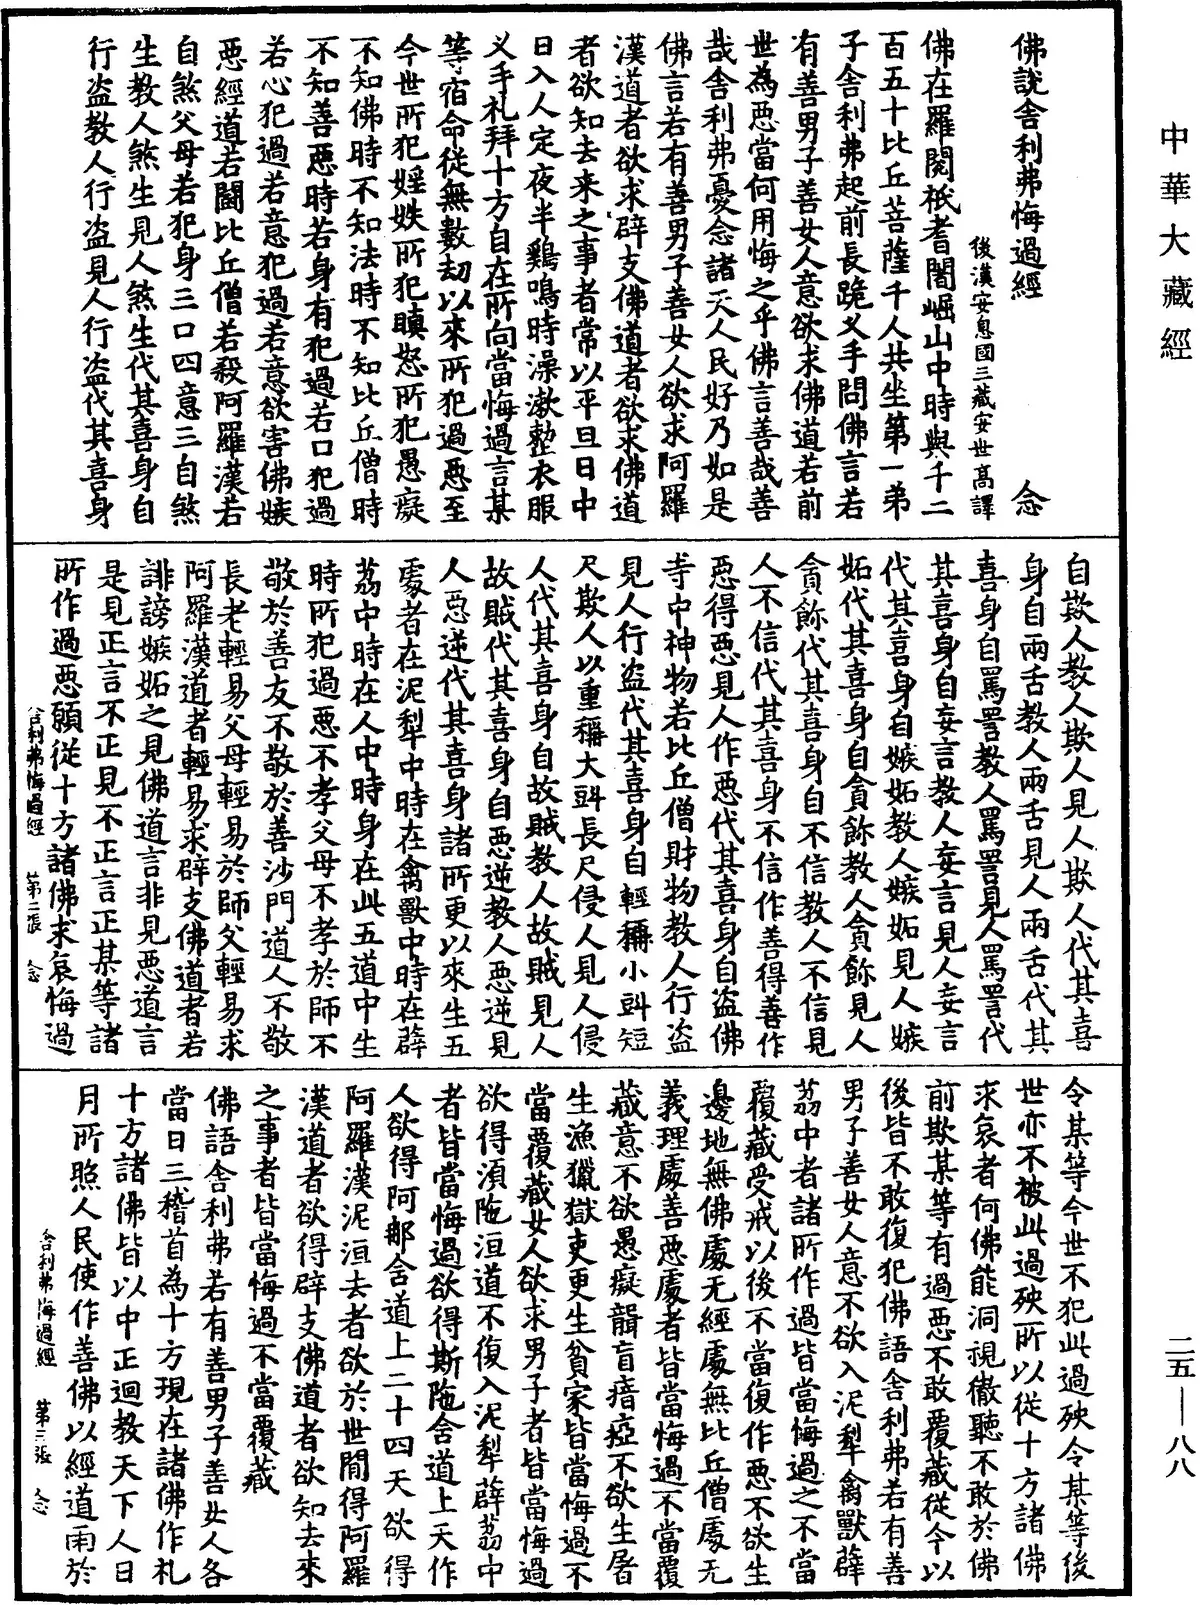 中華大藏經
佛說舍利弗悔過經 念
後漢安息國三藏安世高譯
佛在羅閱祇耆闍崛山中時與千二
百五十比丘菩薩千人共坐第一弟
子舍利弗起前長跪叉手問佛言若
有善男子善女人意欲求佛道若前
世為惡當何用悔之乎佛言善哉善
哉舍利弗憂念諸天人民好乃如是
佛言若有善男子善女人欲求阿羅
漢道者欲求辟支佛道者欲求佛道
者欲知去來之事者常以平旦日中
日入人定夜半鷄鳴時澡漱整衣服
叉手礼拜十方自在所向當悔過言某
等宿命從無數劫以來所犯過惡至
今世所犯婬妷所犯瞋怒所犯愚癡
不知佛時不知法時不知比丘僧時
不知善惡時若身有犯過若口犯過
若心犯過若意犯過若意欲害佛嫉
惡經道若鬪比丘僧若殺阿羅漢若
自煞父母若犯身三口四意三自煞
生教人煞生見人煞生代其喜身自
行盜教人行盜見人行盜代其喜身
自欺人教人欺人見人欺人代其喜
身自兩舌教人兩舌見人兩舌代其
喜身自罵詈教人罵詈見人罵詈代
其喜身自妄言教人妄言見人妄言
代其喜身自嫉妬教人嫉妬見人嫉
妬代其喜身自貪餘教人貪餘見人
貪餘代其喜身自不信教人不信見
人不信代其喜身不信作善得善作
惡得惡見人作惡代其喜身自盜佛
寺中神物若比丘僧財物教人行盜
見人行盜代其喜身自輕稱小㪷短
尺欺人以重稱大㪷長尺侵人見人侵
人代其喜身自故賊教人故賊見人
故賊代其喜身自惡逆教人惡逆見
人惡逆代其喜身諸所更以來生五
處者在泥犁中時在禽獸中時在薜
荔中時在人中時身在此五道中生
時所犯過惡不孝父母不孝於師不
敬於善友不敬於善沙門道人不敬
長老輕易父母輕易於師父輕易求
阿羅漢道者輕易求辟支佛道者若
誹謗嫉妬之見佛道言非見惡道言
是見正言不正見不正言正某等諸
所作過惡願從十方諸佛求哀悔過
舍利弗悔過經 第二張 念
令某等今世不犯此過殃令某等後
世亦不被此過殃所以從十方諸佛
求哀者何佛能洞視徹聽不敢於佛
前欺某等有過惡不敢覆藏從今以
後皆不敢復犯佛語舍利弗若有善
男子善女人意不欲入泥犁禽獸薜
荔中者諸所作過皆當悔過之不當
覆藏受戒以後不當復作惡不欲生
邊地無佛處无經處無比丘僧處无
義理處善惡處者皆當悔過不當覆
藏意不欲愚癡聾盲瘖瘂不欲生屠
生漁獵獄吏更生貧家皆當悔過不
當覆藏女人欲求男子者皆當悔過
欲得須陁洹道不復入泥犁薜荔中
者皆當悔過欲得斯陁含道上天作
人欲得阿那含道上二十四天欲得
阿羅漢泥洹去者欲於世閒得阿羅
漢道者欲得辟支佛道者欲知去來
之事者皆當悔過不當覆藏
佛語舍利弗若有善男子善女人各
當日三稽首為十方現在諸佛作礼
十方諸佛皆以中正迴教天下人日
月所照人民使作善佛以經道雨於
舍利弗悔過經 第三張 念
二五—八八